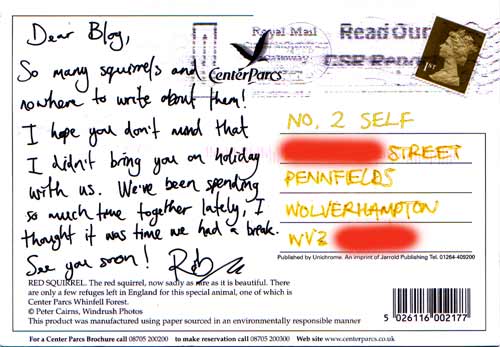 Dear Blog,
So many squirrels and
nowhere to write about them!
I hope you don't mind that
I didn't bring you on holiday
with us. We've been spending
so much time together lately, I
thought it was time we had a break.
See you soon! Rob
Royal Mail
Read Our
CSR Repo
CenterParcs
1ST
NO. 2 SELF
STREET
PENNFIELDS
WOLVERHAMPTON
WV2
Published by Unichrome. An imprint of Jarrold Publishing Tel. 01264-409200
RED SQUIRREL. The red squirrel, now sadly as rare as it is beautiful. There
are only a few refuges left in England for this special animal, one of which is
Center Parcs Whinfell Forest.
© Peter Cairns, Windrush Photos
This product was manufactured using paper sourced in an environmentally responsible manner
5 026116 002177
For a Center Parcs Brochure call 08705 200200 to make reservation call 08705 200300 Web site www.centerparcs.co.uk